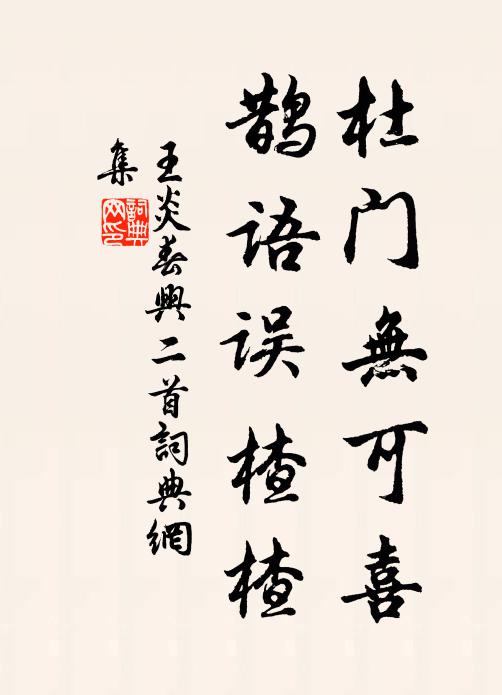 杜门無可喜
鹊语误楂楂
王炎春興二首詞典網
集
詞典网印